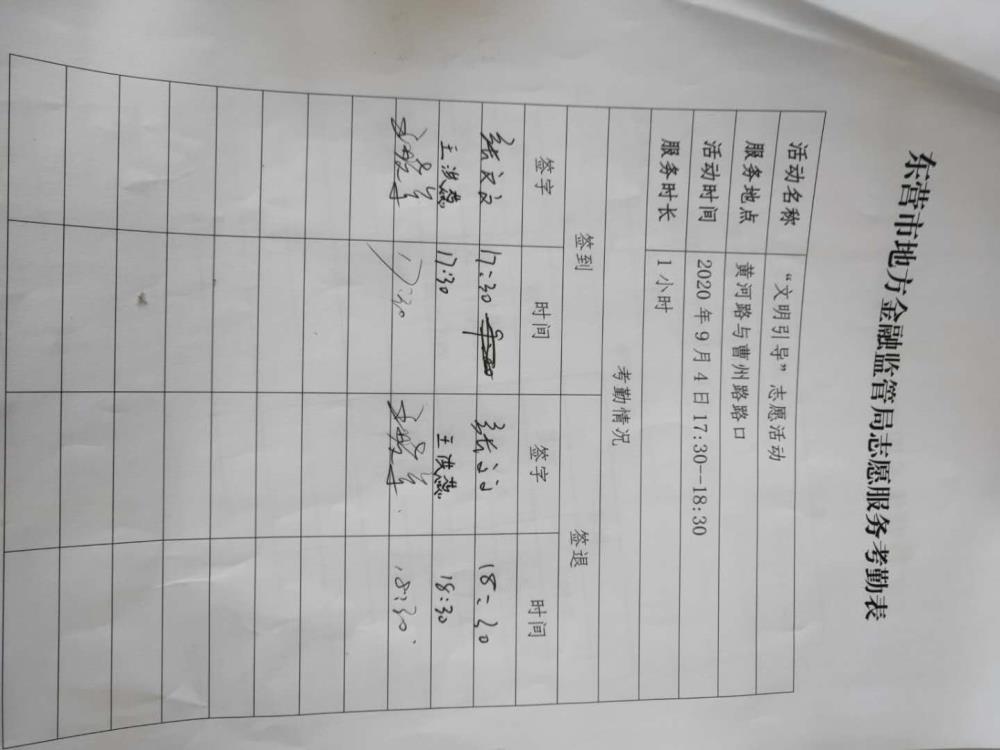 东营市地方金融监管局志愿服务考勤表
活动名称 “文明引导”志愿活动
服务地点 黄河路与曹州路路口
活动时间 2020年9月4日17:30--18:30
服务时长 1小时
考勤情况
签到 签退
签字 时间 签字 时间
17:30 18:30
王洪燕 17:30 王洪燕 18:30
17:30 18:30